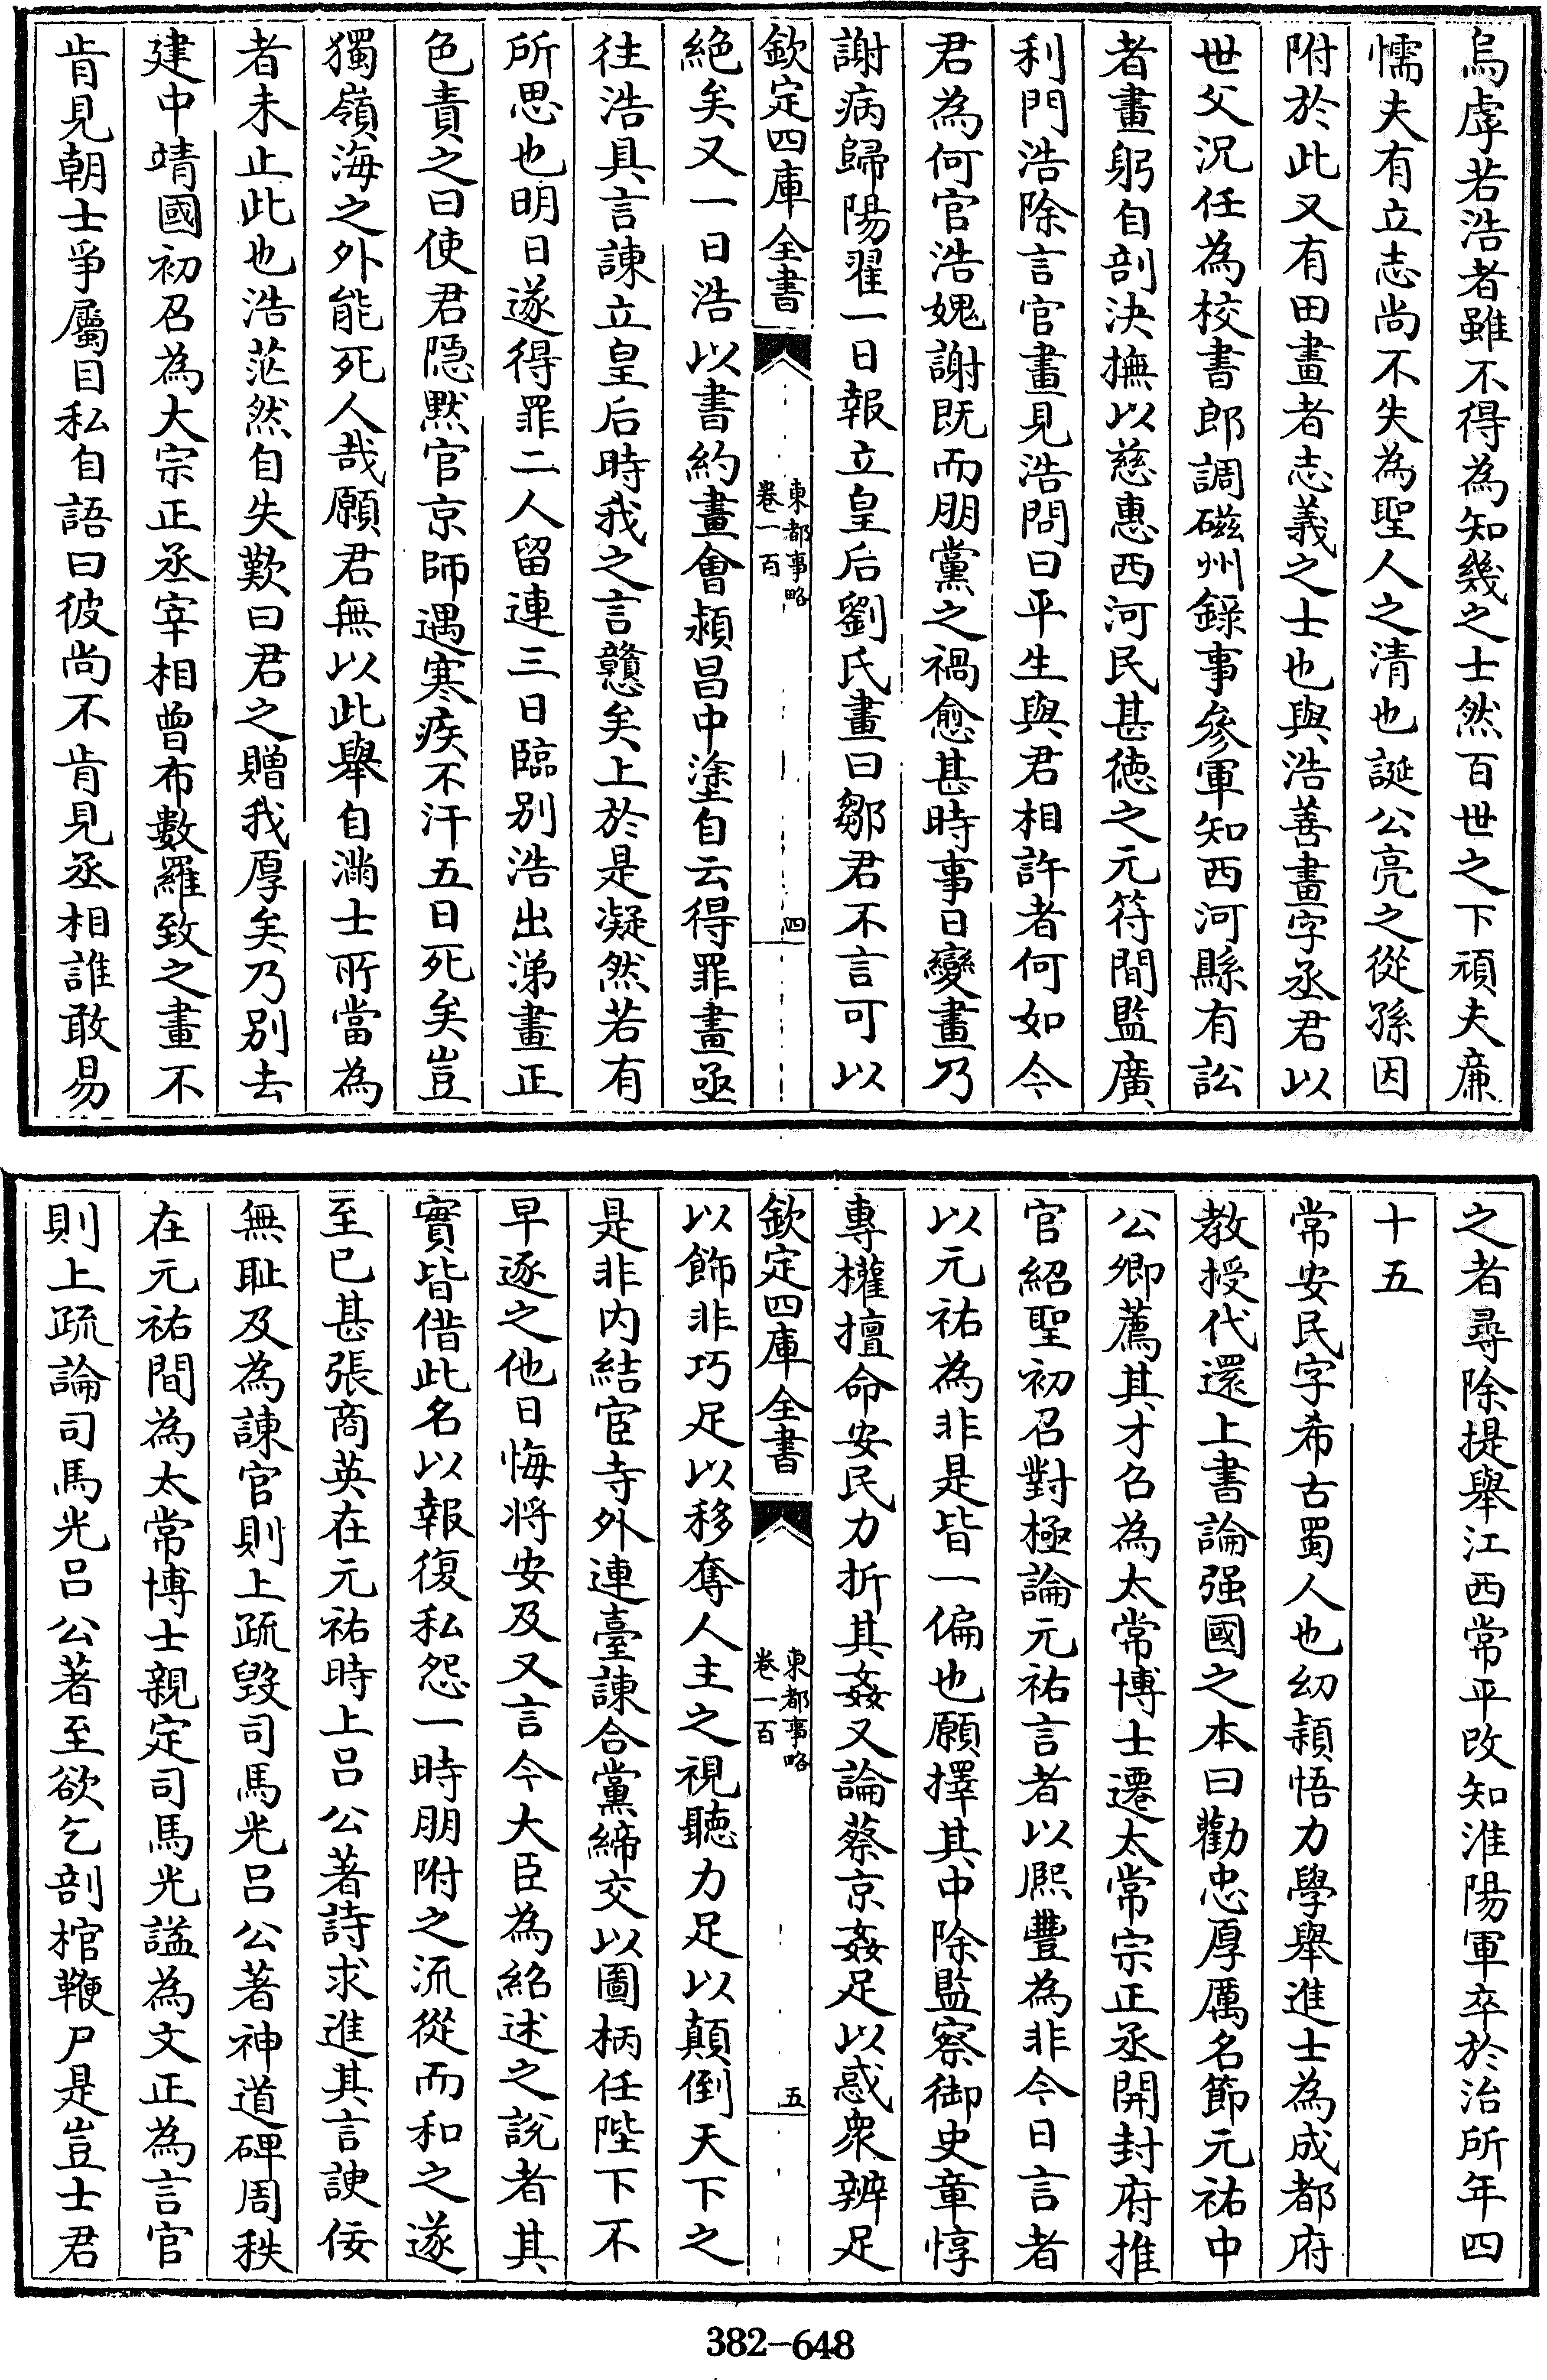 烏虖若浩者雖不得為知幾之士然百世之下頑夫㢘
懦夫有立志尚不失為聖人之清也誕公亮之從孫因
附於此又有田畫者志義之士也與浩善畫字丞君以
世父況任為校書郎調磁州錄事參軍知西河縣有訟
者畫躬自剖決撫以慈惠西河民甚徳之元符間監廣
利門浩除言官畫見浩問曰平生與君相許者何如今
君為何官浩媿謝既而朋黨之禍愈甚時事日變畫乃
謝病歸陽翟一日報立皇后劉氏畫曰鄒君不言可以
欽定四庫全書
東都事略
卷一百
四
絶矣又一日浩以書約畫會潁昌中塗自云得罪畫亟
往浩具言諫立皇后時我之言戇矣上於是凝然若有
所思也明日遂得罪二人留連三日臨别浩出涕畫正
色責之曰使君隠默官京師遇寒疾不汗五日死矣豈
獨嶺海之外能死人哉願君無以此舉自滿士所當為
者未止此也浩茫然自失歎曰君之贈我厚矣乃别去
建中靖國初召為大宗正丞宰相曾布數羅致之畫不
肯見朝士爭屬目私自語曰彼尚不肯見丞相誰敢易
之者尋除提舉江西常平改知淮陽軍卒於治所年四
十五
常安民字希古蜀人也幼穎悟力學舉進士為成都府
教授代還上書論强國之本曰勸忠厚厲名節元祐中
公卿薦其才召為太常博士遷太常宗正丞開封府推
官紹聖初召對極論元祐言者以熈豐為非今日言者
以元祐為非是皆一偏也願擇其中除監察御史章惇
專權擅命安民力折其姦又論蔡京姦足以惑衆辨足
欽定四庫全書
東都事略
卷一百
五
以飾非巧足以移奪人主之視聽力足以顛倒天下之
是非内結宦寺外連臺諫合黨締交以圖柄任陛下不
早逐之他日悔将安及又言今大臣為紹述之說者其
實皆借此名以報復私怨一時朋附之流從而和之遂
至已甚張商英在元祐時上吕公著詩求進其言諛佞
無耻及為諫官則上疏毀司馬光吕公著神道碑周秩
在元祐間為太常博士親定司馬光謚為文正為言官
則上疏論司馬光吕公著至欲乞剖棺鞭尸是豈士君
382-648